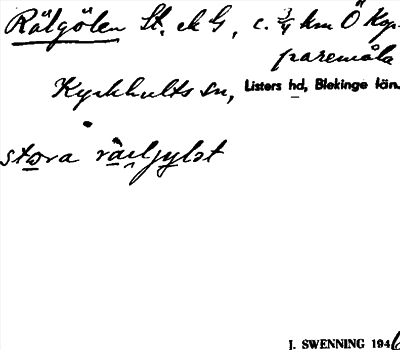 Rälgölen St. ek G, c. 3/4 km Ö Kop-
paremåla
Kyrkhults sn, Listers hd, Blekinge län.
stora räljylət
J. SWENNING 1946